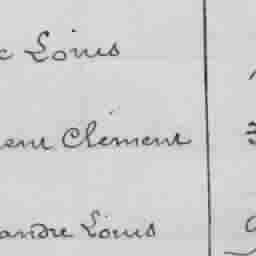 c Louis
ent Clément
andre Louis